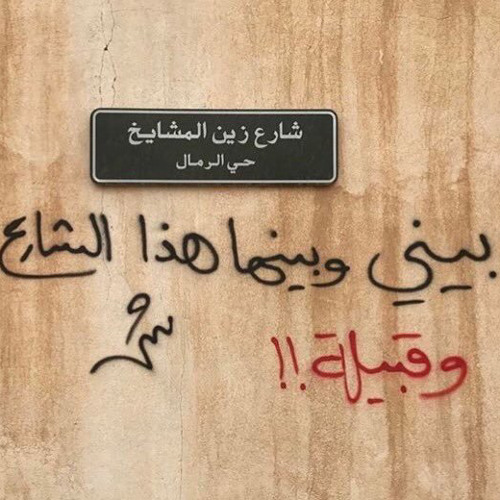 شارع زين المشايخ
حي الرمال
بيني وبينها هذا الشارع
وقبيلة!!